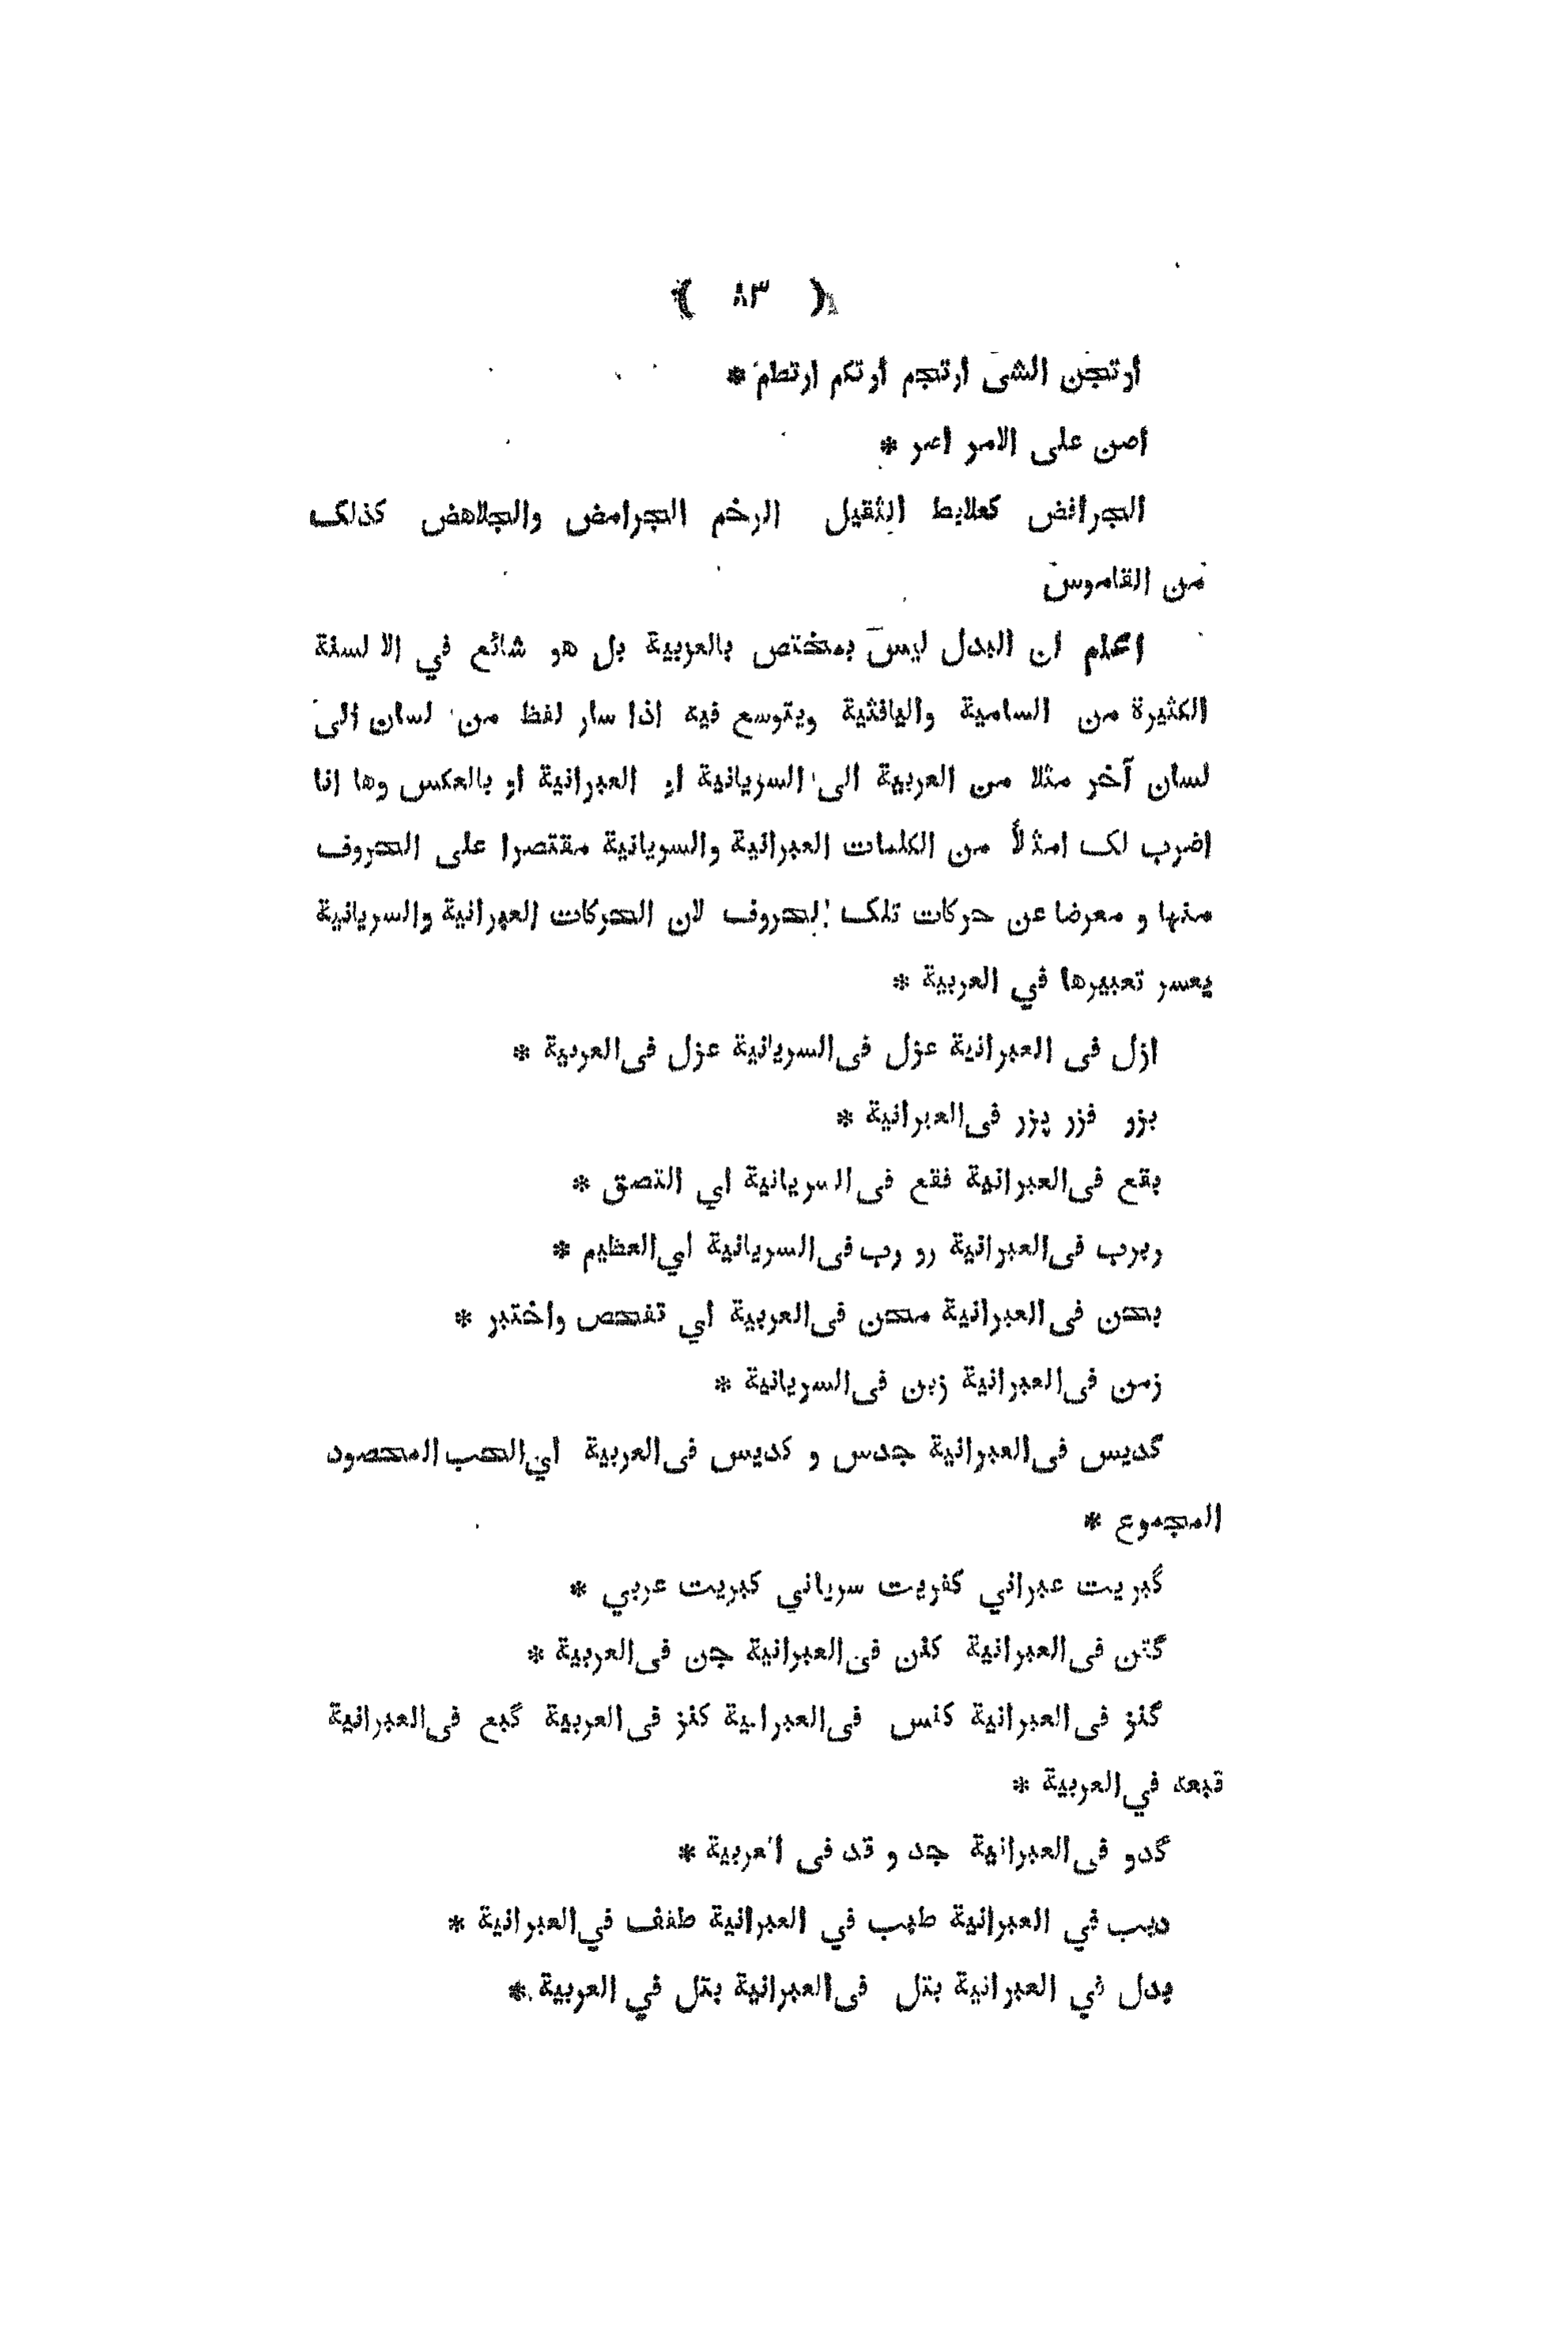 ( ٨٣ )
ارتجن الشى ارتجم ارتكم ارتطم *
اصن على الامر اصر *
الجرافض كعلابط الثقيل الرخم الجرامض والجلاهض كذلک
من القاموس
اعلم ان البدل ليس بمختص بالعربية بل هو شائع في الا لسنة
الكثيرة من السامية واليافثية ويتوسع فيه اذا سار لفظ من لسان الى
لسان آخر مثلا من العربية الى السريانية او العبرانية او بالعكس وها انا
اضرب لک امثلاً من الكلمات العبرانية والسريانية مقتصرا على الحروف
منها و معرضا عن حركات تلک الحروف لان الحركات العبرانية والسريانية
يعسر تعبيرها في العربية *
ازل فى العبرانية عزل فى السريانية عزل فى العربية *
بزو فزر پزر فى العبرانية *
بقع فى العبرانية فقع فى السريانية اي التصق *
ربرب فى العبرانية رو رب فى السريانية اي العظيم *
بحن فى العبرانية محن فى العربية اي تفحص واختبر *
زمن فى العبرانية زبن فى السريانية *
گديس فى العبرانية جدس و كديس فى العربية اي الحب المحصود
المجموع *
گبريت عبراني كفريت سرياني كبريت عربي *
گنن فى العبرانية كنن فى العبرانية جن فى العربية *
گنز فى العبرانية كنس فى العبرانية كنز فى العربية گبع فى العبرانية
قبعه في العربية *
گدو فى العبرانية جد و قد فى العربية *
ديب في العبرانية طيب في العبرانية طفف في العبرانية *
بدل في العبرانية بتل فى العبرانية بتل في العربية *